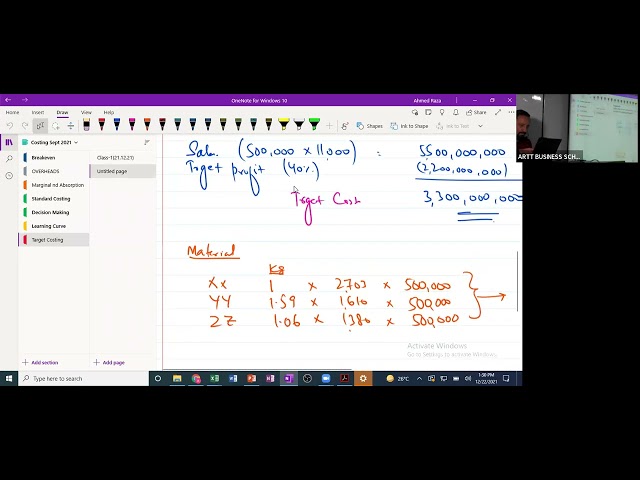 OneNote for Windows 10
Ahmed Raza
Home Insert Draw View Help Class Notebook
Shapes Ink to Shape Ink to Text
Costing Sept 2021
Breakeven
OVERHEADS
Marginal nd Absorption
Standard Costing
Decision Making
Learning Curve
Target Costing
Class-1(21.12.21)
Untitled page
Add section
Add page
Sale (500,000 x 11,000) : 5500,000,000
Trget profit (40%) (2,200,000,000)
Trget Cost 3,300,000,000
Material
Kg
XX 1 x 2703 x 500,000
YY 1.59 x 1610 x 500,000
ZZ 1.06 x 1380 x 500,000
Activate Windows
Go to Settings to activate Windows.
Type here to search
26°C
1:36 PM
12/22/2021
ARTT BUSINESS SCH...